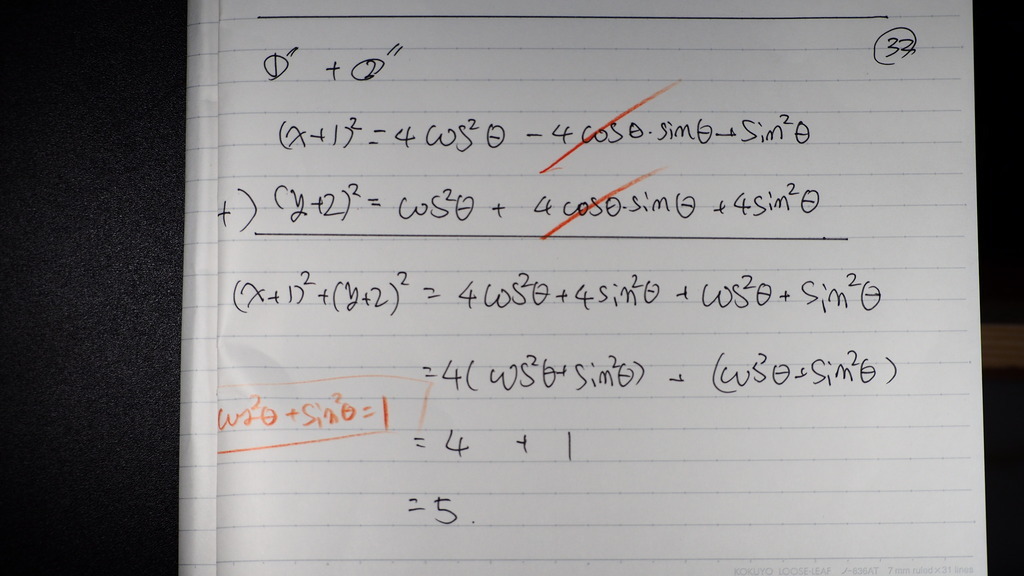 33
①″ + ②″
(x+1)² = 4cos²θ − 4cosθ·sinθ + sin²θ
+) (y+2)² = cos²θ + 4cosθ·sinθ + 4sin²θ
(x+1)²+(y+2)² = 4cos²θ+4sin²θ + cos²θ + sin²θ
=4(cos²θ+sin²θ) + (cos²θ+sin²θ)
cos²θ+sin²θ=1
= 4 + 1
= 5.
KOKUYO LOOSE-LEAF ノ-836AT 7 mm ruled×31 lines